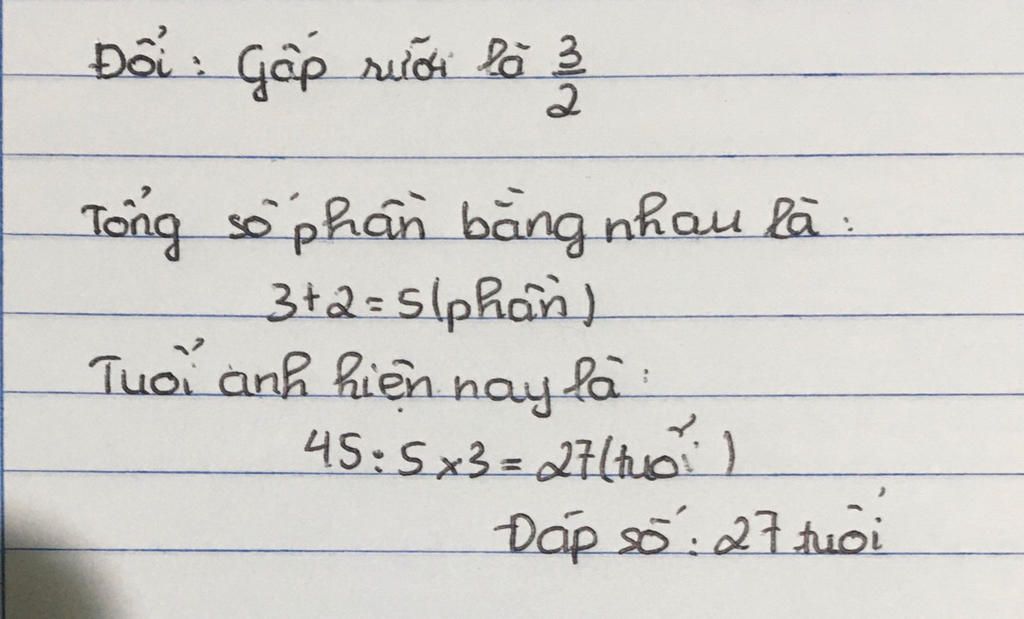 Đổi: Gấp rưỡi là 3/2
Tổng số phần bằng nhau là:
3+2=5(phần)
Tuổi anh hiện nay là:
45:5x3=27(tuổi)
Đáp số: 27 tuổi